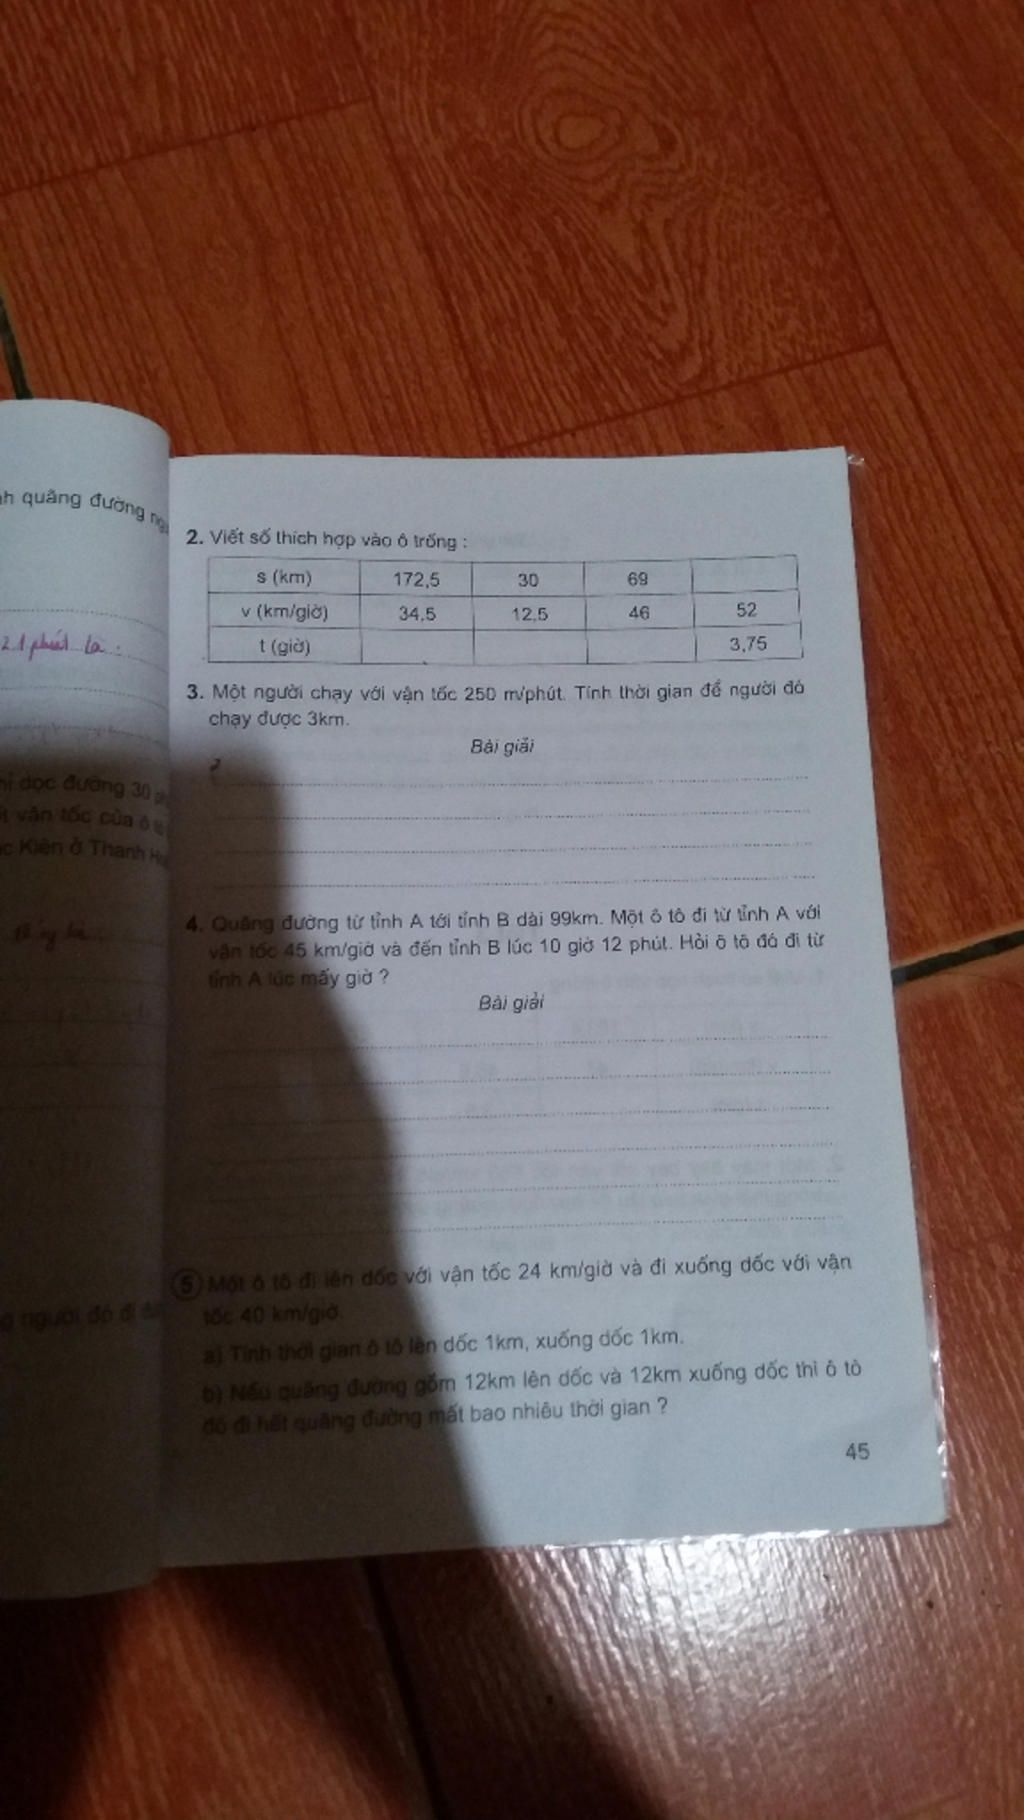 quãng đường
21 phút là :
dọc đường 30
vận tốc của ô tô
Kiên ở Thanh
người đó đi
2. Viết số thích hợp vào ô trống :
s (km) 172,5 30 69
v (km/giờ) 34,5 12,5 46 52
t (giờ) 3,75
3. Một người chạy với vận tốc 250 m/phút. Tính thời gian để người đó
chạy được 3km.
Bài giải
4. Quãng đường từ tỉnh A tới tỉnh B dài 99km. Một ô tô đi từ tỉnh A với
vận tốc 45 km/giờ và đến tỉnh B lúc 10 giờ 12 phút. Hỏi ô tô đó đi từ
tỉnh A lúc mấy giờ ?
Bài giải
5 Một ô tô đi lên dốc với vận tốc 24 km/giờ và đi xuống dốc với vận
tốc 40 km/giờ.
a) Tính thời gian ô tô lên dốc 1km, xuống dốc 1km.
b) Nếu quãng đường gồm 12km lên dốc và 12km xuống dốc thì ô tô
đó đi hết quãng đường mất bao nhiêu thời gian ?
45